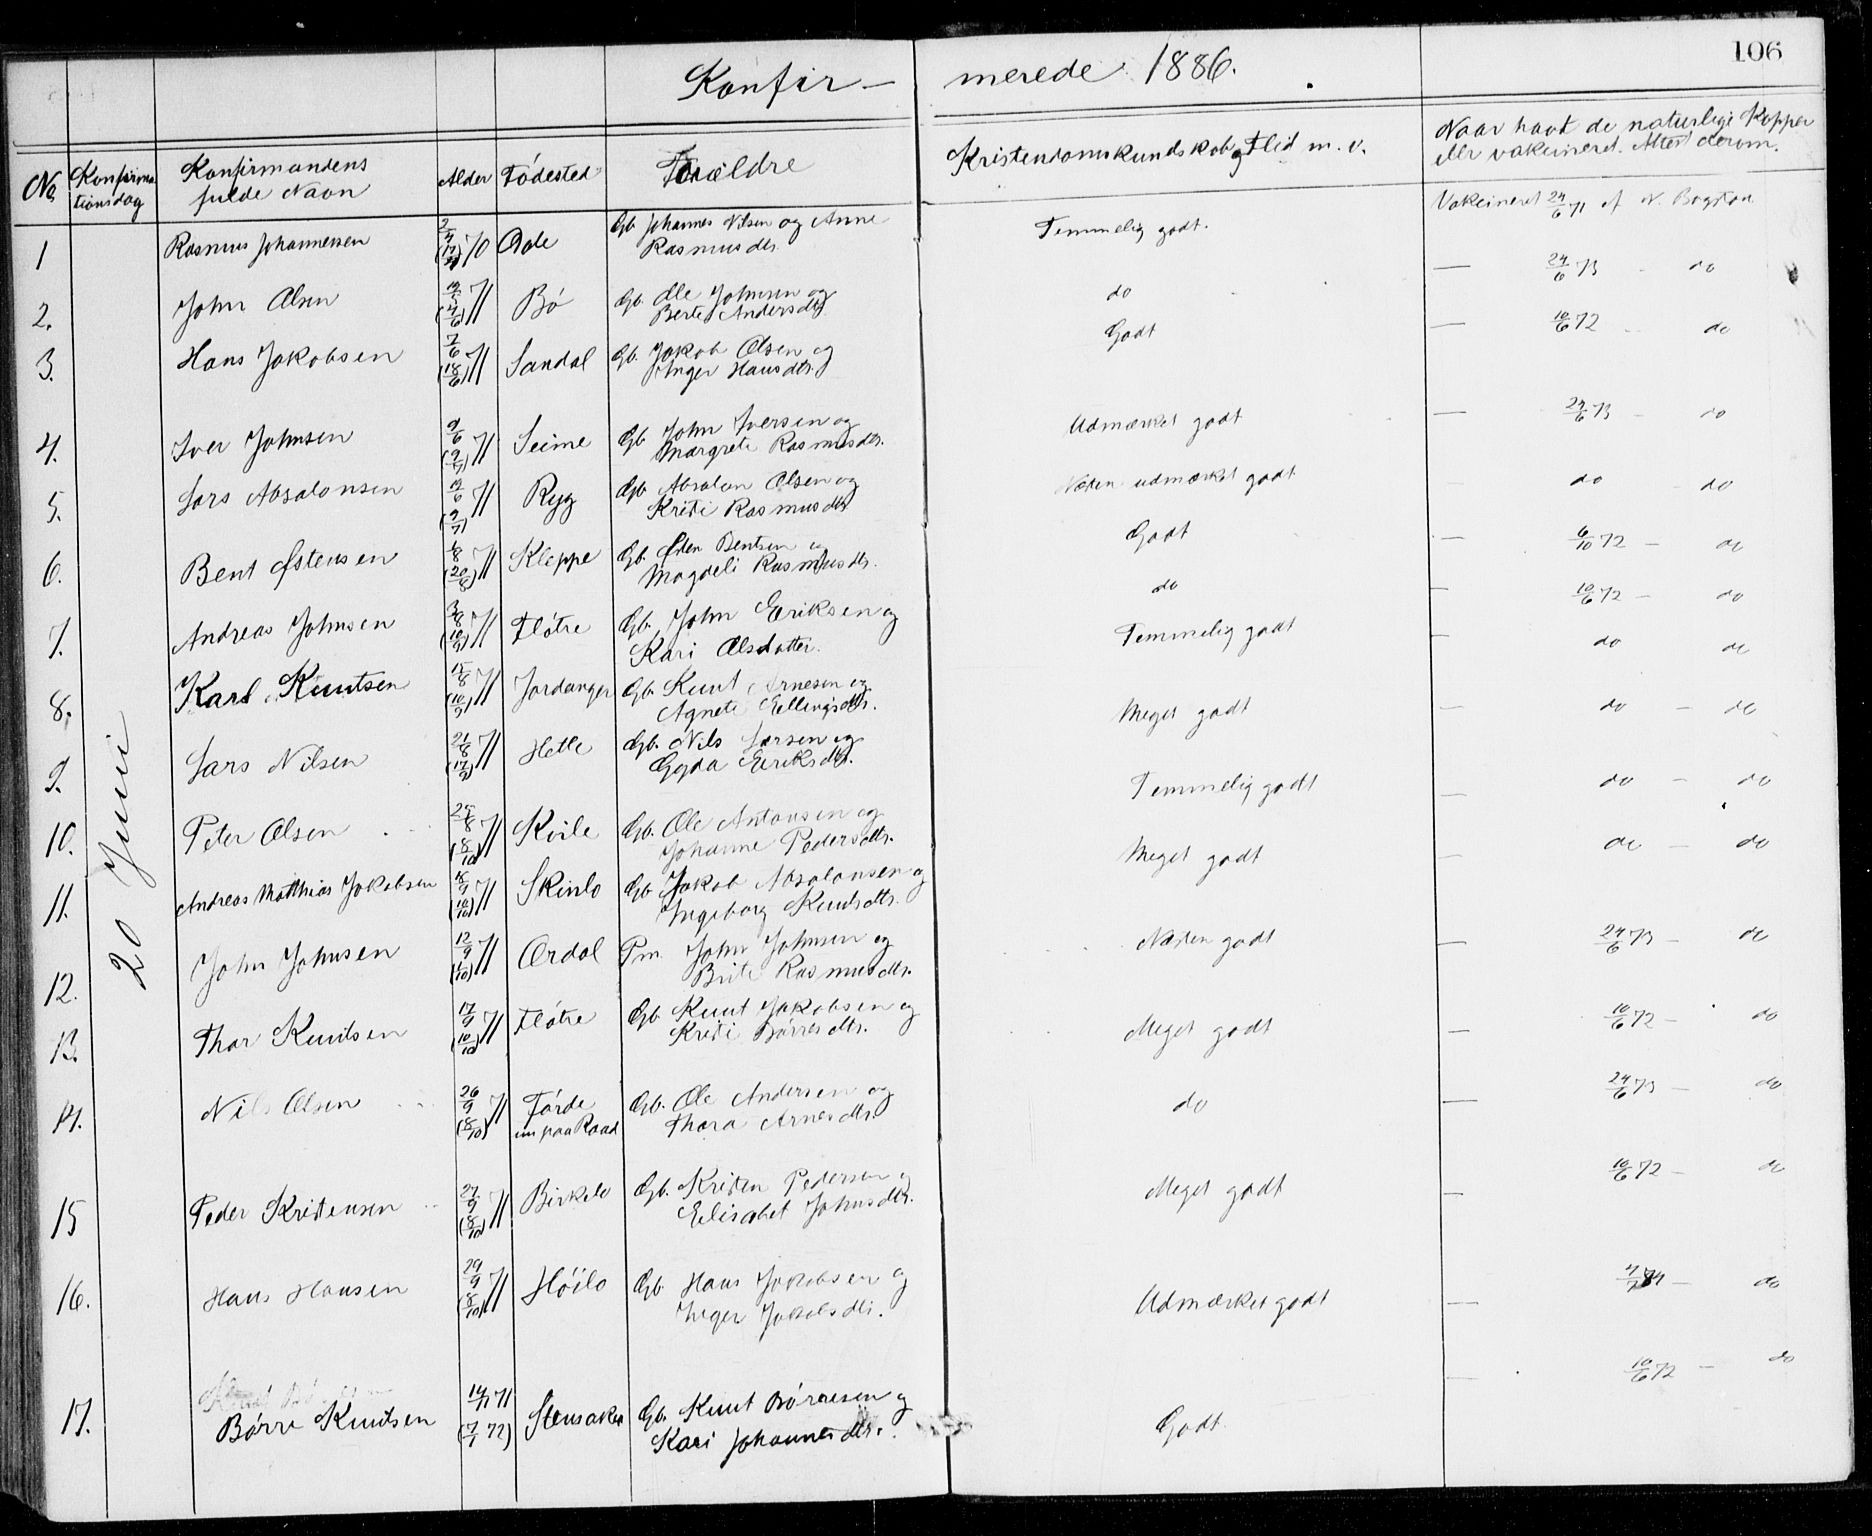 106
Konfir- merede 1886.
No. Konfirma- tionsdag Konfirmandens fulde Navn Alder Fødested Forældre Kristendomskundskab og Flid m. v. Naar havt de naturlige Kopper eller vakcineret. Attest derom.
20 Juni
1 Rasmus Johannessen 70 Gb. Johannes Nilsen og Anne Temmelig godt. Vakcineret 24/6 71 af N.
Rasmusdtr.
2. John Olsen 71 Bø Gb. Ole Johnsen og do — 24/6 73 - do
Berte Andersdtr.
3. Hans Jakobsen 7/6 (18/6) 71 Sandal Gb. Jakob Olsen og Godt — 10/6 72 - do
Inger Hansdtr.
4. Iver Johnsen 9/6 (9/7) 71 Seime Gb. John Iversen og Udmærket godt — 24/6 73 - do
Margrete Rasmusdtr.
5. Lars Absalonsen (9/7) 71 Ryg Gb. Absalon Olsen og Næsten udmærket godt - do - do
Kristi Rasmusdtr.
6. Bent Østensen (20/8) 71 Kleppe Gb. Østen Bentsen og Godt — 6/10 72 - do
Magdeli Rasmusdtr.
7. Andreas Johnsen 3/8 (10/9) 71 Fløtre Gb. John Eriksen og do — 10/6 72 - do
Kari Olsdatter.
8. Karl Knutsen 15/8 (10/9) 71 Jordanger Gb. Knut Arnesen og Temmelig godt - do do
Agnete Ellingsdtr.
9. Lars Nilsen 21/8 (17/9) 71 Hetle Gb. Nils Larsen og Meget godt - do - do
Gyda Eriksdtr.
10. Peter Olsen 25/8 (8/10) 71 Kvile Gb. Ole Antonsen og Temmelig godt - do - do
Johanne Pedersdtr.
11. Andreas Matthias Jakobsen (10/10) 71 Skinlo Gb. Jakob Absalonsen og Meget godt - do - do
Ingeborg Knutsdtr.
12. John Johnsen 12/9 (1/10) 71 Ordal Pm. John Johnsen og Næsten godt — 24/6 73 - do
Brite Rasmusdtr.
13. Thor Knudsen 17/9 (10/10) 71 Fløtre Gb. Knut Jakobsen og Meget godt — 10/6 72 - do
Kristi Børresdtr.
14. Nils Olsen 26/9 (8/10) 71 Førde Gb. Ole Andersen og do — 24/6 73 - do
nu paa Raad Thora Arnesdtr.
15 Peder Kristensen 27/9 (8/10) 71 Birkelo Gb. Kristen Pedersen og Meget godt — 10/6 72 - do
Elisabet Johnsdtr.
16. Hans Hansen 29/9 (8/10) 71 Høilo Gb. Hans Jakobsen og Udmærket godt — 74 - do
Inger Jakobsdtr.
17. Børre Knudsen 71 Stensaker Gb. Knut Børresen og Godt - 10/6 72 - do
(7/1 72) Kari Johannesdtr.